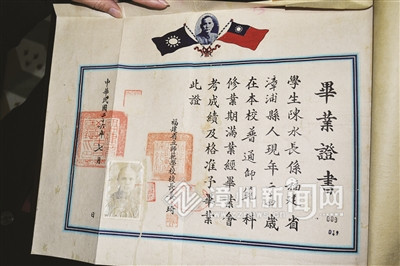 畢業證書
學生陳水長係福建省
漳浦縣人現年二 歲
在本校普通師範科
修業期滿業經畢業會
考成績及格准予畢業
此證
福建省立 師範學校校長
中華民國 年七月 日
009
漳州新闻网